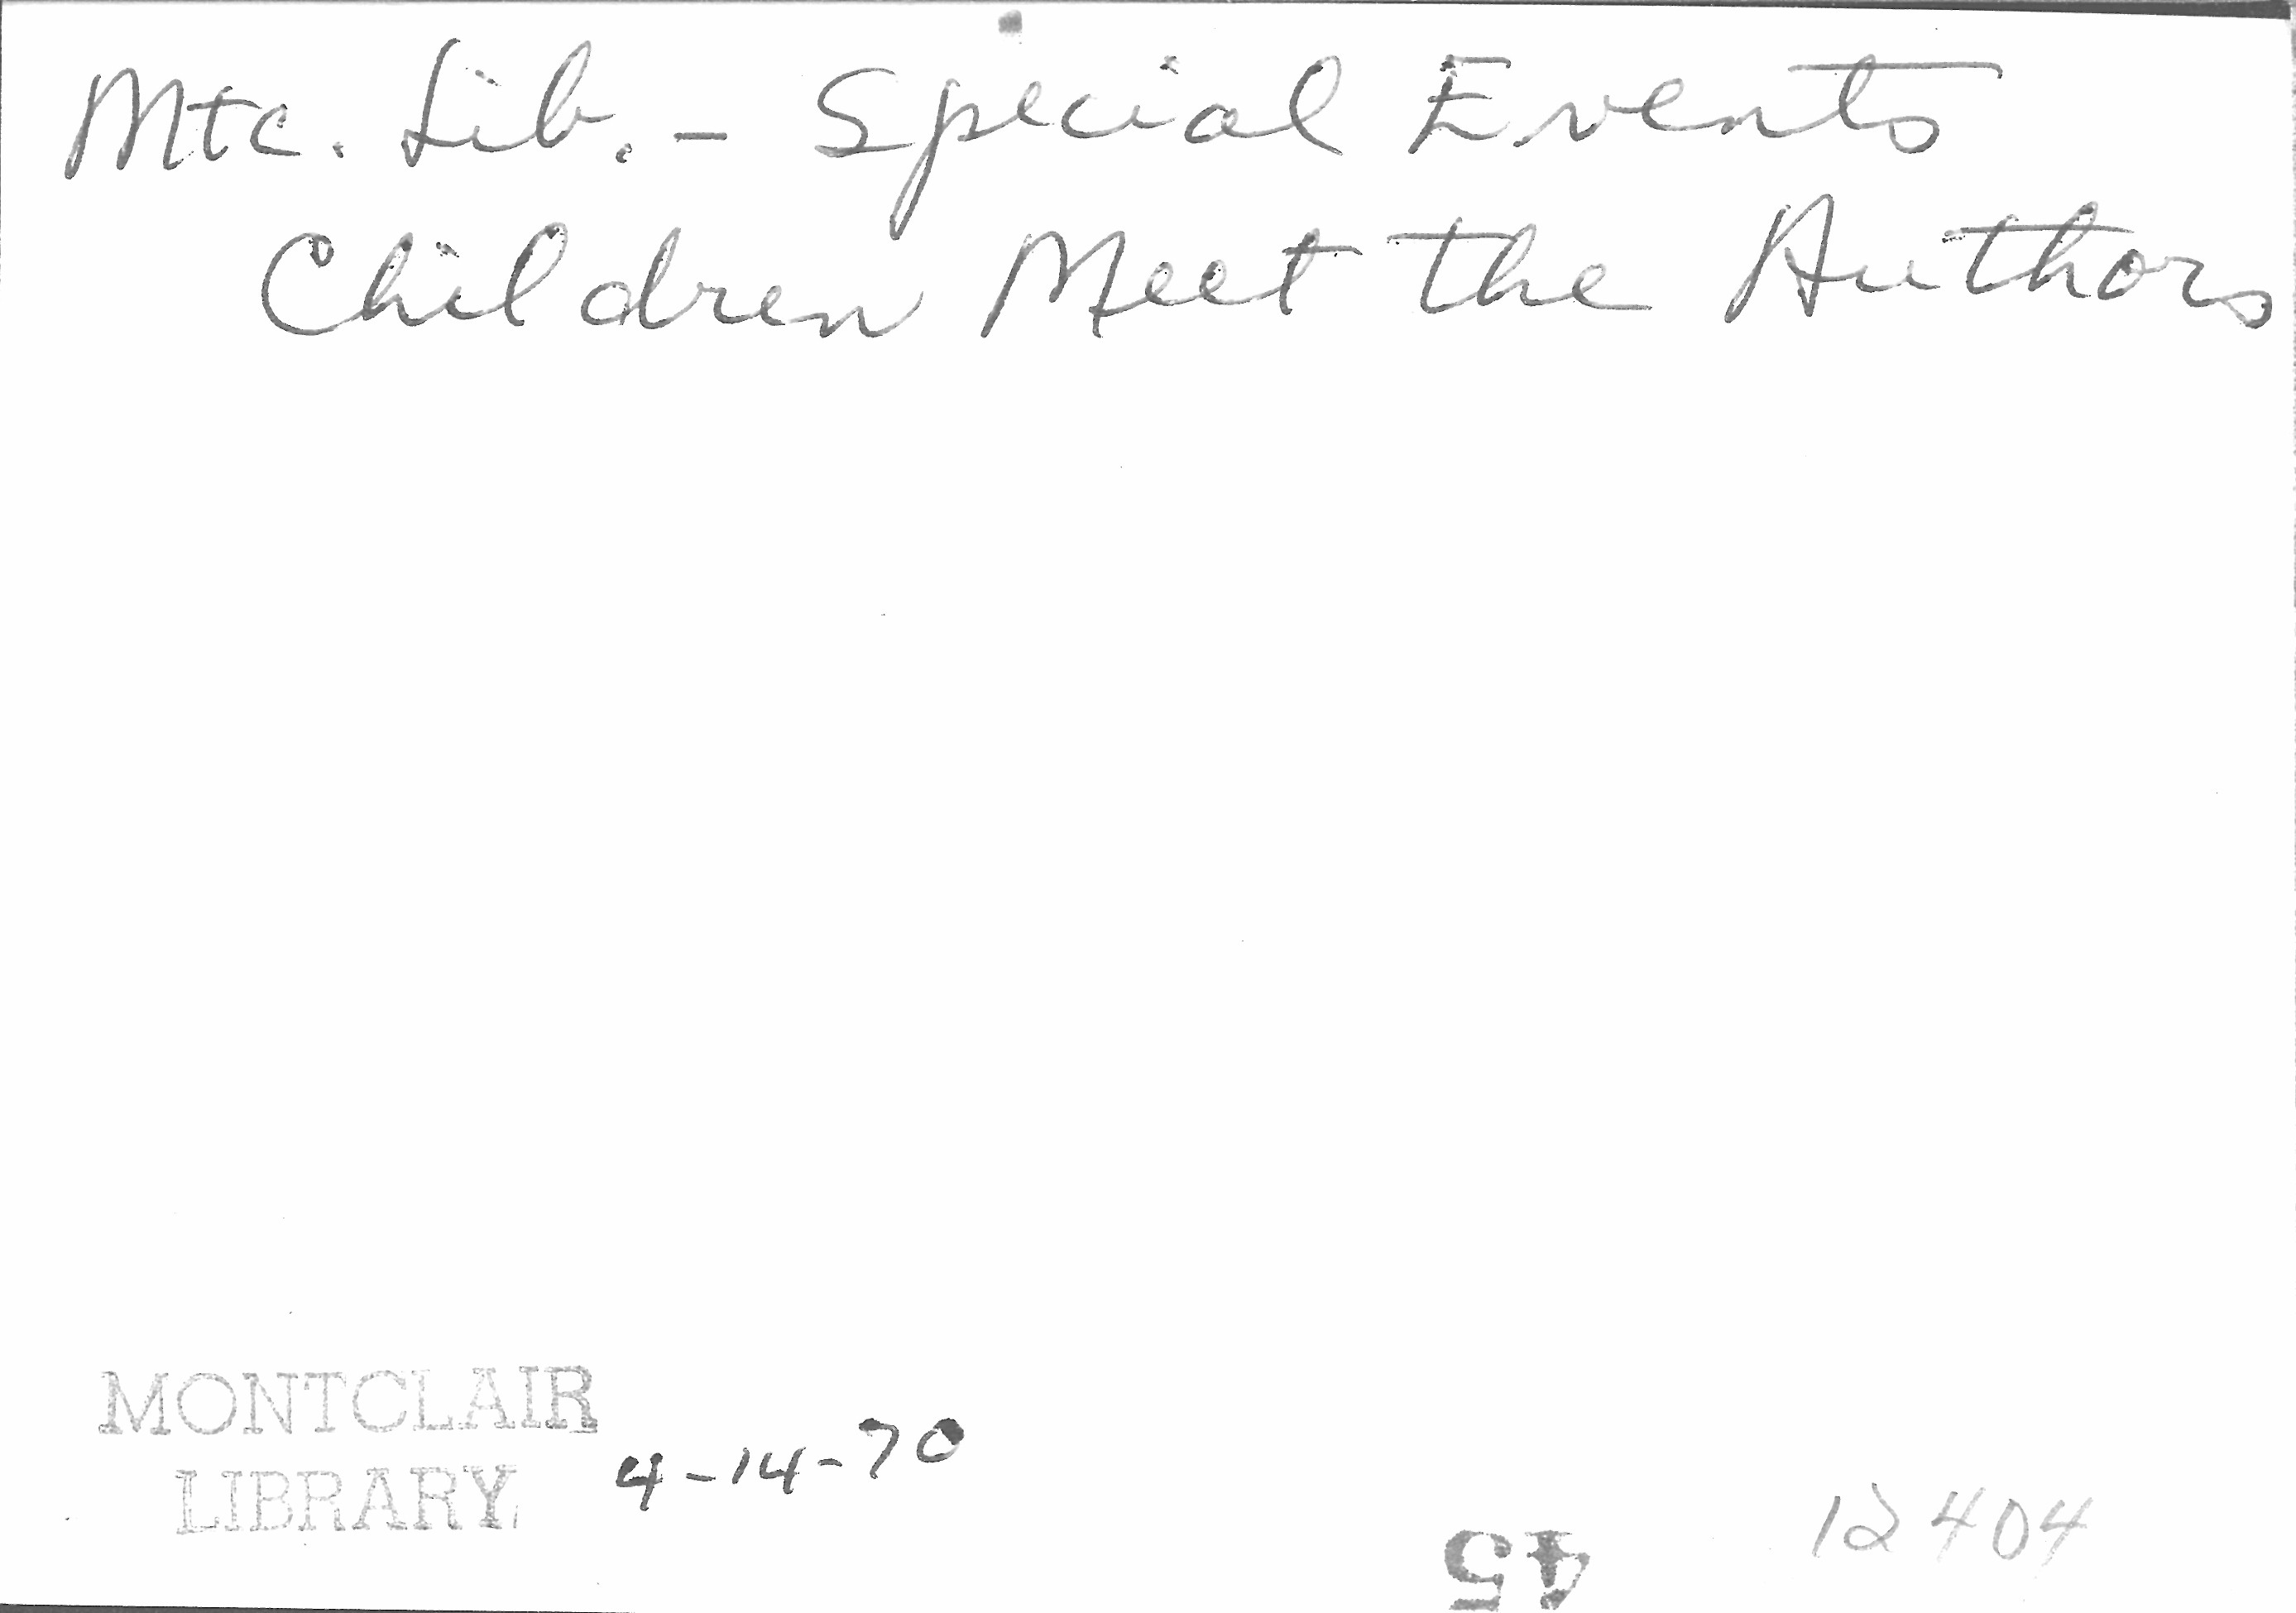 Mtc. Lib. - Special Events
Children Meet the Authors
MONTCLAIR
LIBRARY
4-14-70
45
12404